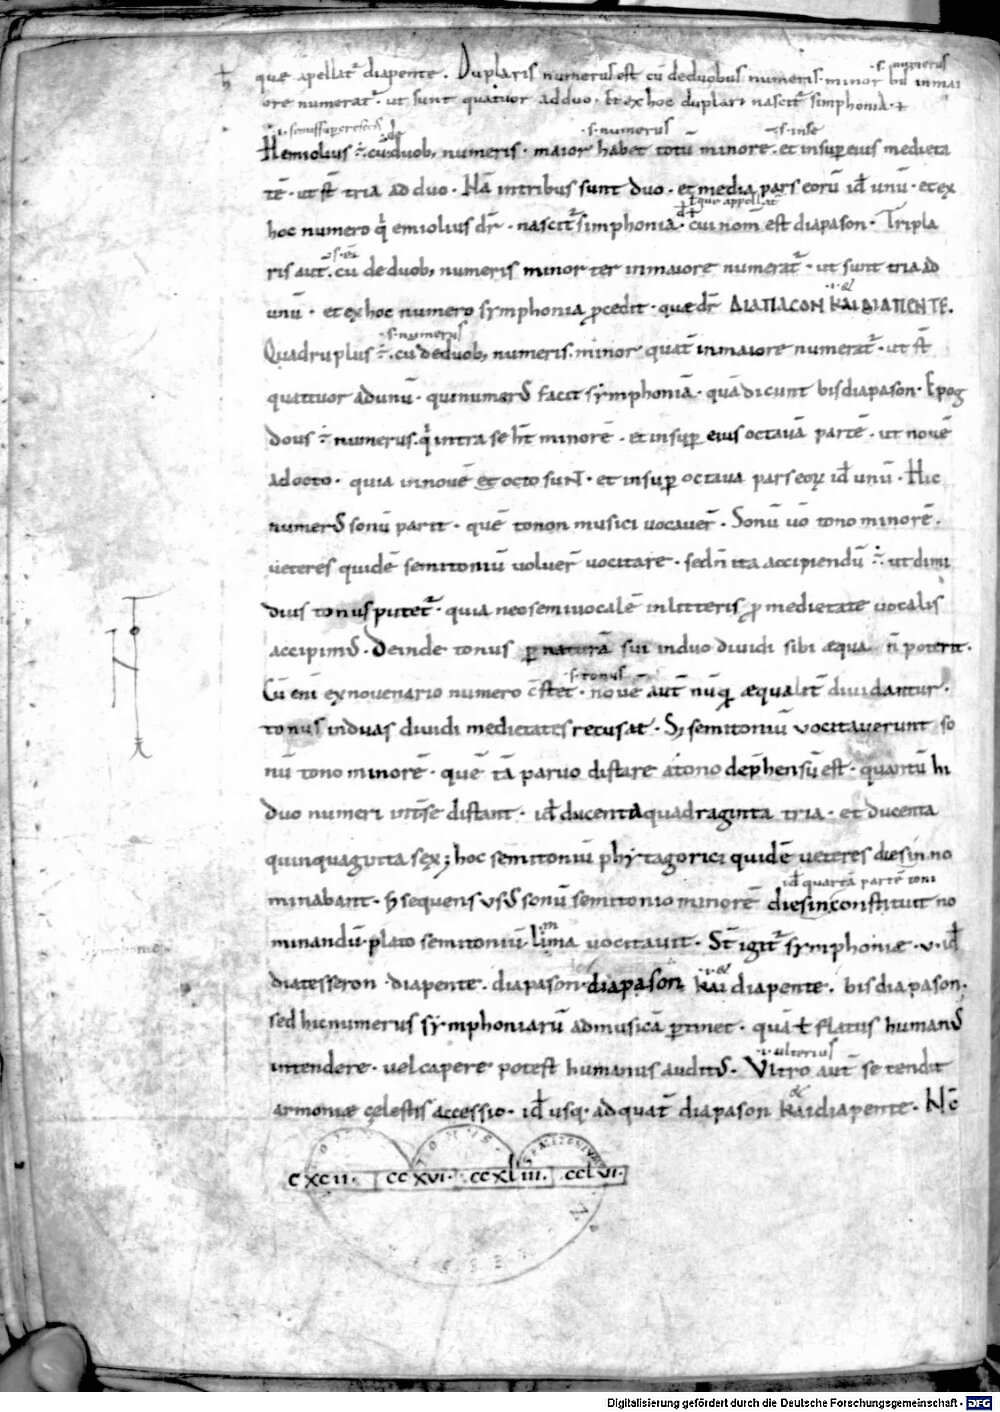 quę apellat̄ diapente. Duplaris numerus est cū de duobus numeris minor bis in mai
ore numerat̄. ut sunt quatuor ad duo. Et ex hoc duplari nascit̄ simphonia
s. numerus
Hemiolius ÷ cū de duob; numeris. maior habet totū minorē. et insup̄ eius medieta
s. numerus s. in se
tē. ut st̄ tria ad duo. Nā in tribus sunt duo. et media pars eorū id̄ unū. et ex
que appellat̄
hoc numero q̇ emiolius dr̄. nascit̄ simphonia. cui nom̄ est diapason. Tripla
ris aut̄. cū de duob; numeris minor ter in maiore numerat̄. ut sunt tria ad
unū. et ex hoc numero symphonia p̄cedit. quę dr̄ ΔΙΑΠΑCON KAI ΔΙΑΠΕΝΤΕ.
s. numerus
Quadruplus ÷ cū de duob; numeris. minor quat̄ in maiore numerat̄. ut st̄
quattuor ad unū. qui numerꝰ facit symphoniā. quā dicunt bisdiapason. Epog
dous ÷ numerus. q̇ intra se ht̄ minorē. et insup̄ eius octauā partē. ut nouē
ad octo. quia in nouē et octo sunt. et insup̄ octaua pars eoꝝ id̄ unū. Hic
numerꝰ sonū parit. quē tonon musici uocauer̄. Sonū ūo tono minorē.
ueteres quidē semitoniū uoluer̄ uocitare. sed n̄ ita accipiendū ÷ ut dimi
dius tonus putet̄. quia nec semiuocalē in litteris p̄ medietate uocalis
accipimꝰ. Deinde tonus p̄ naturā sui in duo diuidi sibi æqua n̄ poterit.
s. tonus
Cū eni ex nouenario numero c̄stet. nouē aut̄ nūq̄ æqualit̄ diuidantur.
tonus in duas diuidi medietates recusat. S; semitoniū vocitauerunt so
nū tono minorē. quē tā paruo distare a tono dep̄hensū est. quantū hi
duo numeri int̄ se distant. id̄ ducenta quadraginta tria. et ducenta
quinquaginta sex; hoc semitoniū phytagorici quidē ueteres diesin no
id̄ quartā partē toni
minabant. sequens usꝰ sonū semitonio minorē diesin constituit no
minandū. plato semitoniū lima uocitauit. St̄ igit̄ symphoniæ. v. id̄
diatesseron. diapente. diapason. diapason kai diapente. bisdiapason.
sed hic numerus symphoniarū ad musicā p̄tinet. quā ł flatus humanꝰ
intendere. uel capere potest humanus auditꝰ. Vltro aut̄ se tendit
.i. ulterius
armoniæ cęlestis accessio. id̄ usq. ad quat̄ diapason kai diapente. Nc̄
TONUS. SEMITONIUM
CXCII. CCXVI. CCXLIII. CCLVI.
Digitalisierung gefördert durch die Deutsche Forschungsgemeinschaft - DFG